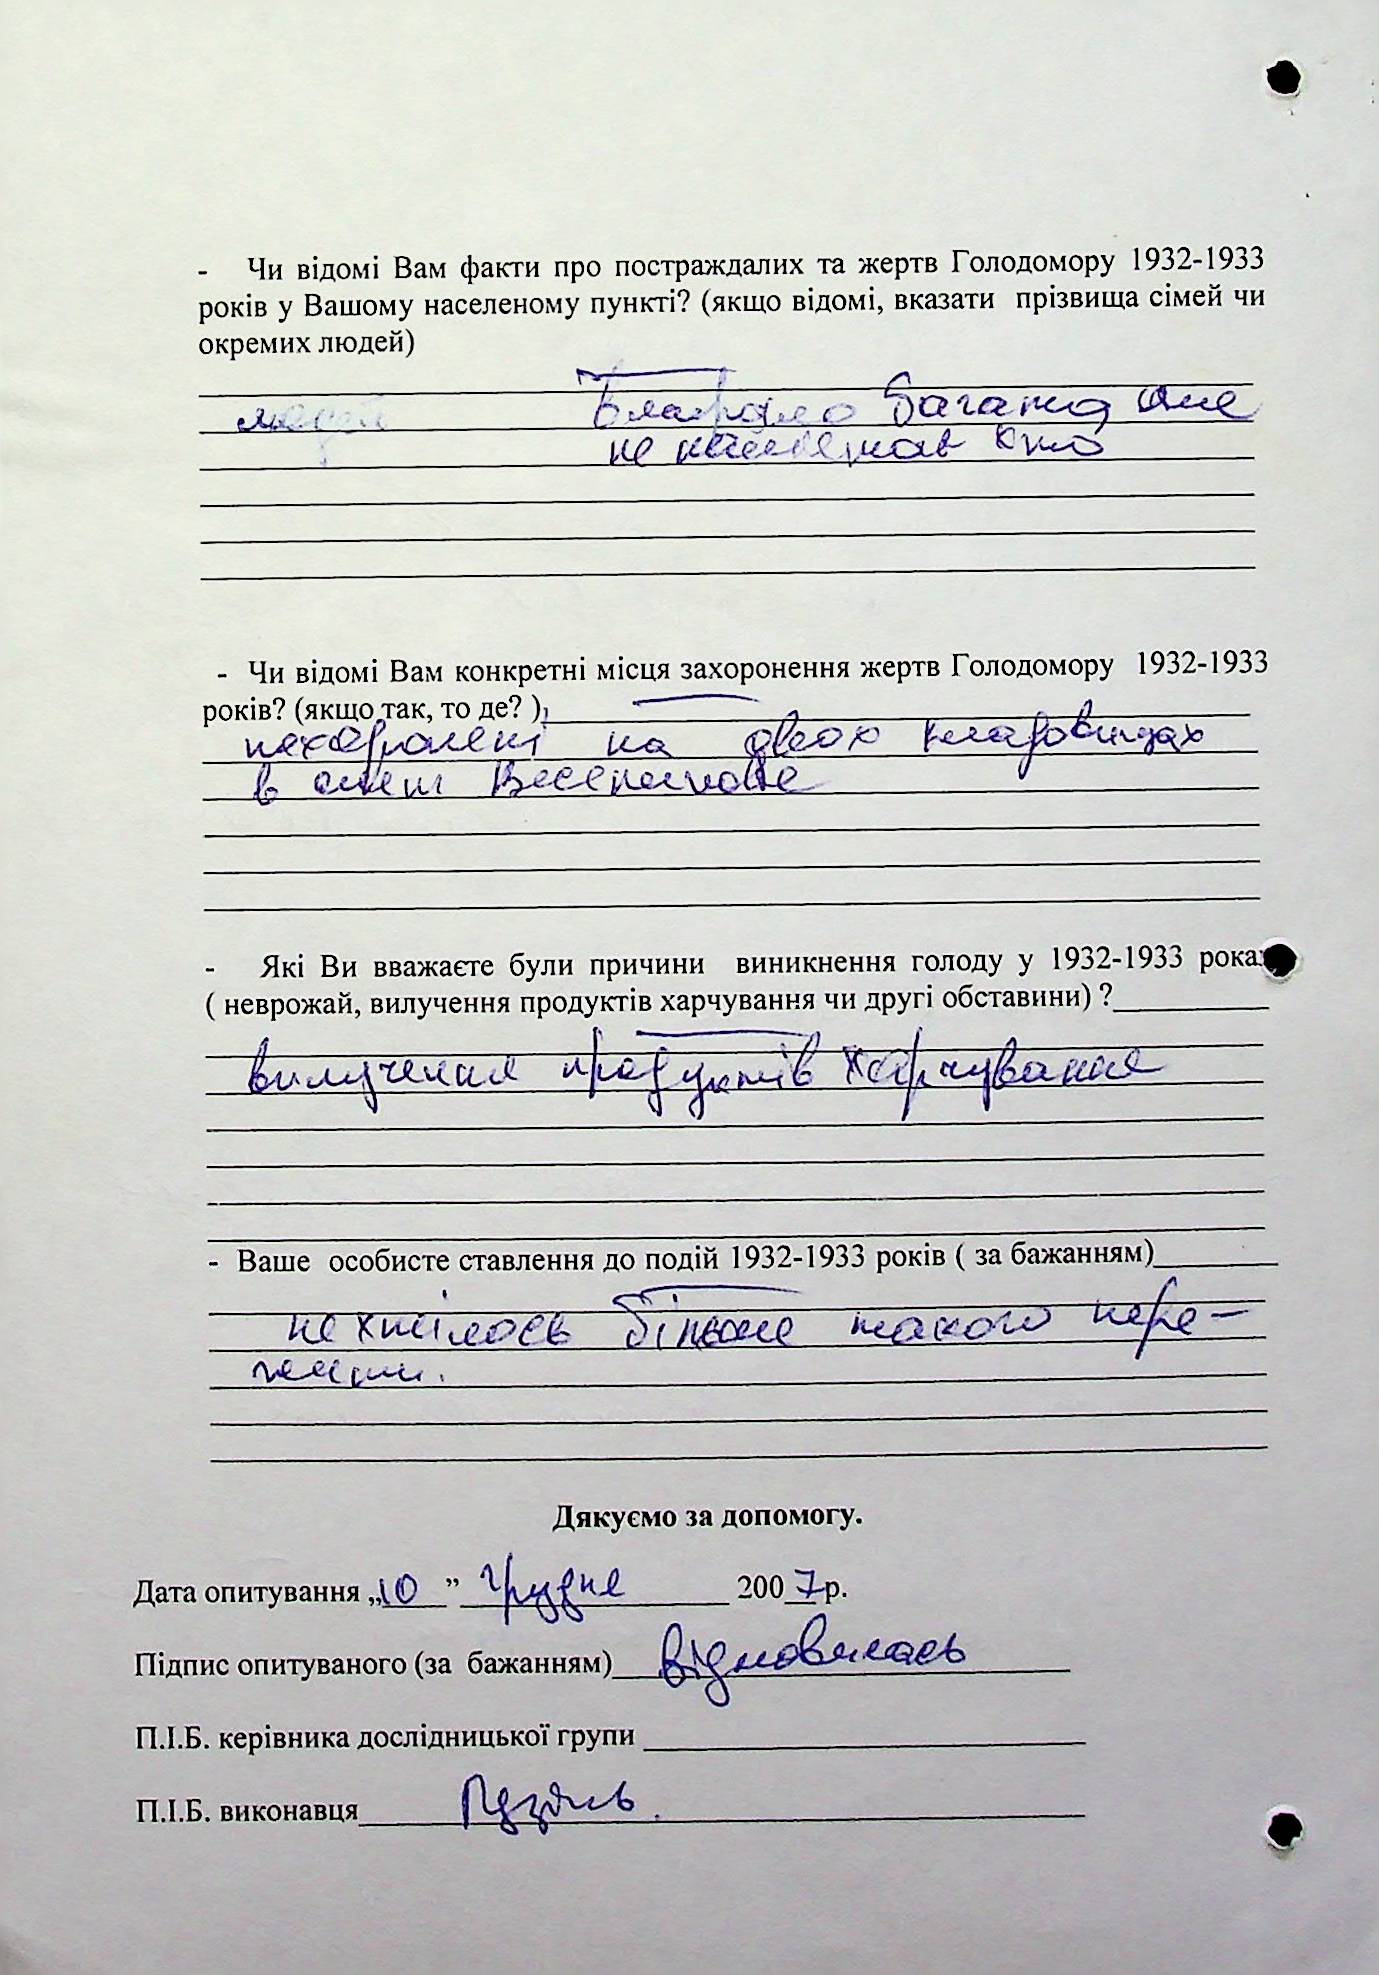 - Чи відомі Вам факти про постраждалих та жертв Голодомору 1932-1933
років у Вашому населеному пункті? (якщо відомі, вказати прізвища сімей чи
окремих людей)
людей багато але
не
- Чи відомі Вам конкретні місця захоронення жертв Голодомору 1932-1933
років? (якщо так, то де? )
похоронені на двох кладовищах
в
- Які Ви вважаєте були причини виникнення голоду у 1932-1933 роках
( неврожай, вилучення продуктів харчування чи другі обставини) ?
вилучення продуктів харчування
- Ваше особисте ставлення до подій 1932-1933 років ( за бажанням)
не хтілось більше такого пере-
жити.
Дякуємо за допомогу.
Дата опитування „10” грудня 2007р.
Підпис опитуваного (за бажанням) відмовилась
П.І.Б. керівника дослідницької групи
П.І.Б. виконавця